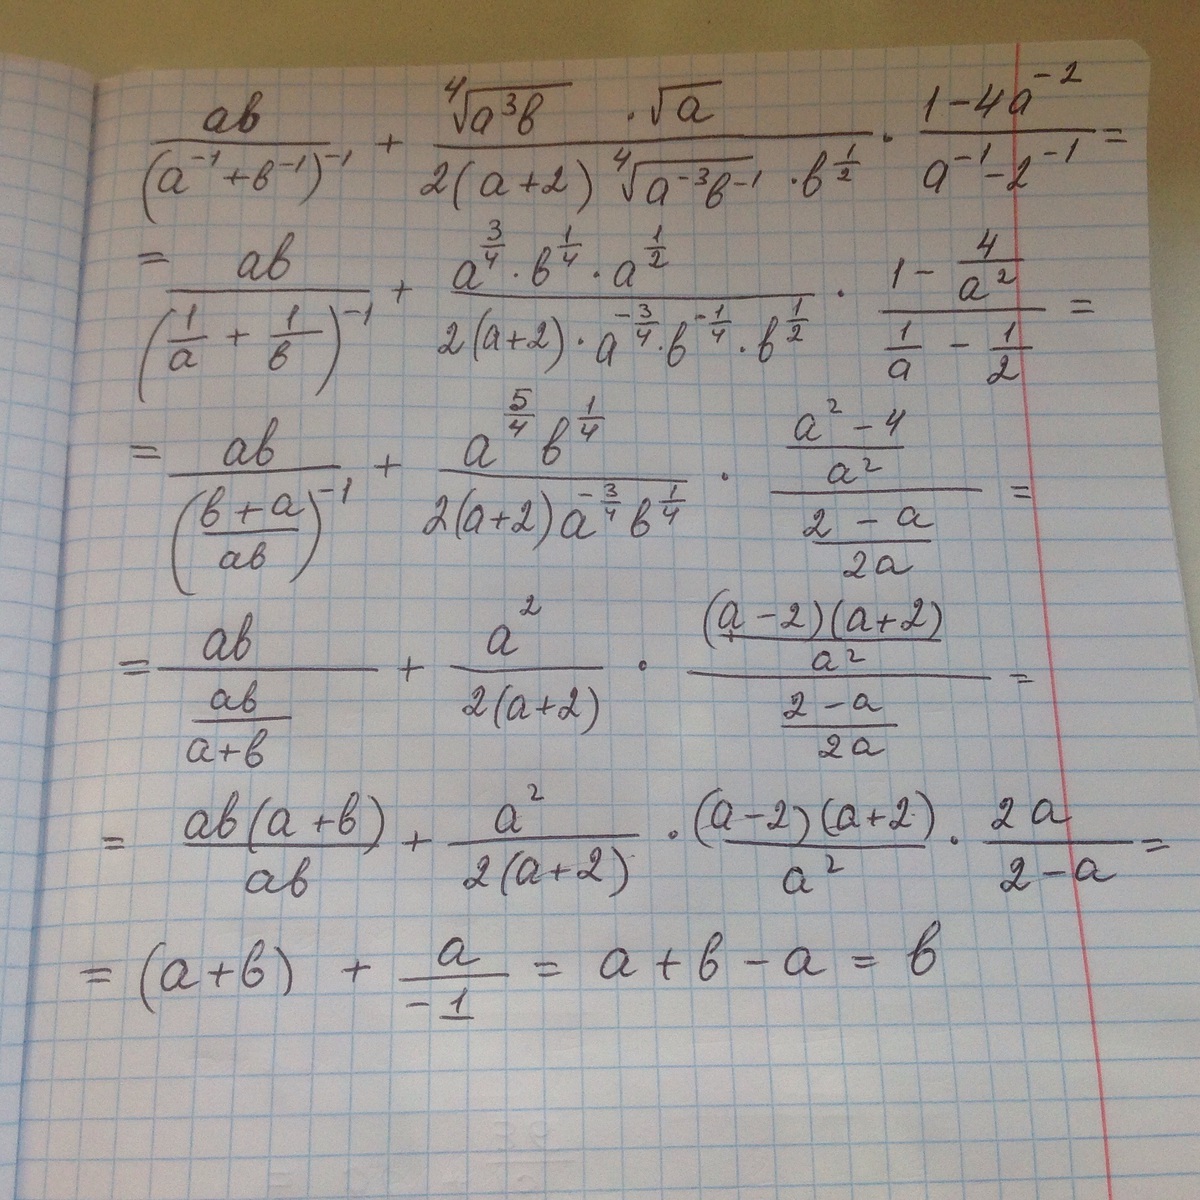 ab/(a⁻¹+b⁻¹)⁻¹ + (⁴√(a³b) · √a)/(2(a+2) ⁴√(a⁻³b⁻¹) · b^(1/2)) · (1-4a⁻²)/(a⁻¹-2⁻¹) =
= ab/(1/a + 1/b)⁻¹ + (a^(3/4) · b^(1/4) · a^(1/2))/(2(a+2) · a^(-3/4) · b^(-1/4) · b^(1/2)) · (1 - 4/a²)/(1/a - 1/2) =
= ab/((b+a)/(ab))⁻¹ + (a^(5/4) b^(1/4))/(2(a+2) a^(-3/4) b^(1/4)) · ((a²-4)/a²)/((2-a)/(2a)) =
= ab/(ab/(a+b)) + a²/(2(a+2)) · ((a-2)(a+2)/a²)/((2-a)/(2a)) =
= ab(a+b)/(ab) + a²/(2(a+2)) · (a-2)(a+2)/a² · 2a/(2-a) =
= (a+b) + a/(-1) = a+b-a = b